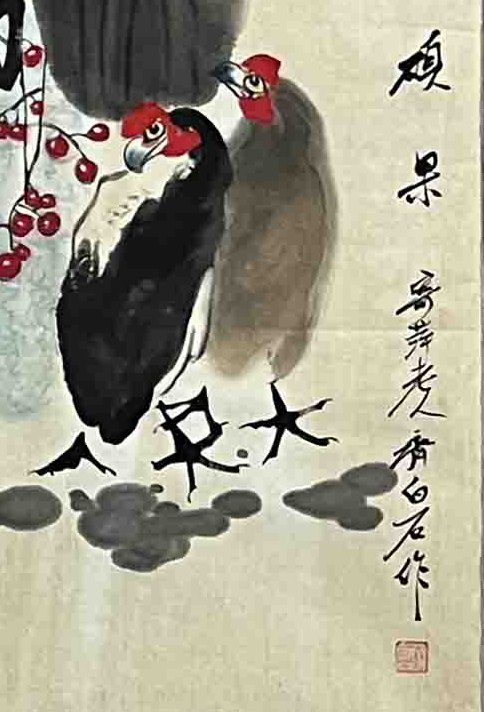 硕果
寄萍老人齊白石作